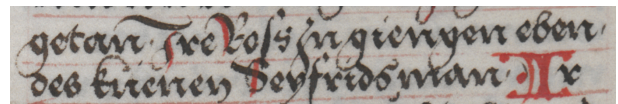 getan · Ire Ross In giengen eben ·
des kuenen Seyfrids man · Ir